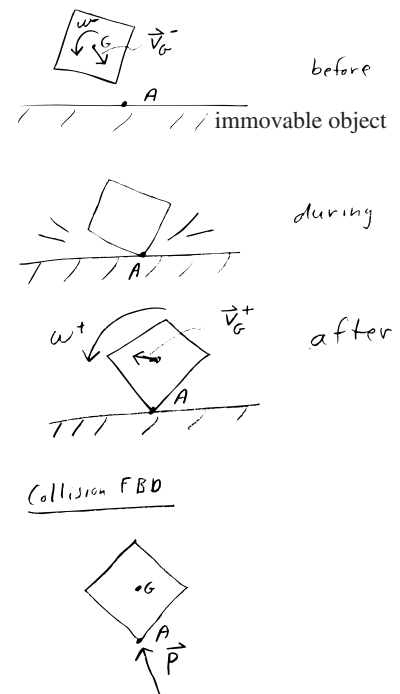 ω⁻
G
v⃗_G⁻
before
A
immovable object
during
A
ω⁺
v⃗_G⁺
after
A
Collision FBD
G
A
P⃗